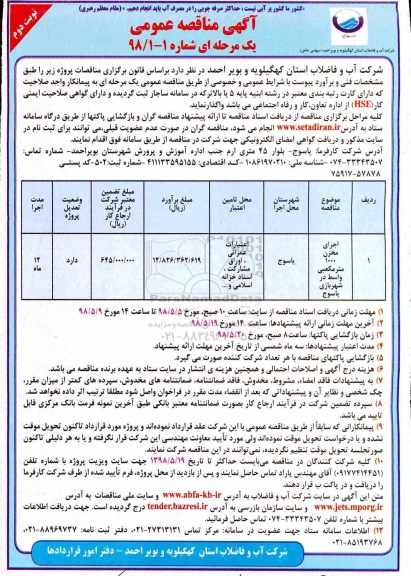 «کشور ما کشور پر آبی نیست ، حداکثر صرفه جویی را در مصرف آب باید انجام دهیم.» (مقام معظم رهبری)
نوبت دوم
آگهی مناقصه عمومی
یک مرحله ای شماره ۱-۹۸/۱
شرکت آب و فاضلاب استان کهگیلویه و بویراحمد (سهامی خاص)
شرکت آب و فاضلاب استان کهگیلویه و بویر احمد در نظر دارد براساس قانون برگزاری مناقصات پروژه زیر را طبق
مشخصات فنی و برآورد پیوست با شرایط عمومی و خصوصی از طریق مناقصه عمومی یک مرحله ای به پیمانکار واجد صلاحیت
که دارای کارت رتبه بندی معتبر در رشته ابنیه پایه ۵ یا بالاتر که در سامانه ساجار ثبت گردیده و دارای گواهی صلاحیت ایمنی
کار(HSE) از اداره تعاون،کار و رفاه اجتماعی می باشد واگذارنماید.
کلیه مراحل برگزاری مناقصه از دریافت اسناد مناقصه تا ارائه پیشنهاد مناقصه گران و بازگشایی پاکتها از طریق درگاه سامانه
ستاد به آدرس www.setadiran.ir انجام می شود، مناقصه گران در صورت عدم عضویت قبلی،می توانند برای ثبت نام در
سایت مذکور و دریافت گواهی امضای الکترونیکی جهت شرکت در مناقصه از طریق سامانه فوق اقدام نمایند.
آدرس شرکت کارفرما: یاسوج- بلوار ۴۵ متری ارم جنب اداره آموزش و پرورش شهرستان بویراحمد- شماره تماس:
۰۷۴-۳۳۳۴۳۵۰۷ -شناسه ملی: ۱۰۸۶۱۹۷۰۲۱۰ -کد اقتصادی: ۴۱۱۱۳۳۵۹۵۱۵۵ -شماره ثبت:۵۰۲-کد پستی
۷۵۹۱۷-۵۷۸۷۸
ردیف | موضوع مناقصه | شهرستان محل اجرا | محل تامین اعتبار | مبلغ برآورد (ریال) | مبلغ تضمین معتبر شرکت در فرآیند ارجاع کار (ریال) | وضعیت تعدیل پروژه | مدت اجرا
۱ | اجرای مخزن ۱۰۰۰ مترمکعبی واسط در شهربازی یاسوج | یاسوج | اعتبارات عمرانی ، اوراق مشارکت ، اسناد خزانه اسلامی و... | ۱۲/۸۲۶/۳۶۲/۶۱۹ | ۶۴۵/۰۰۰/۰۰۰ | دارد | ۱۲ ماه
۱) مهلت زمانی دریافت اسناد مناقصه از سایت: ساعت ۱۰ صبح، مورخ ۹۸/۵/۵ تا ساعت ۱۴ مورخ ۹۸/۵/۹
۲) آخرین مهلت زمانی ارائه پیشنهادها: ساعت ۱۴ مورخ ۹۸/۵/۱۹
۳) زمان بازگشایی پاکتها: ساعت ۸ صبح، مورخ ۹۸/۵/۲۰
۴) مدت اعتبار پیشنهادها: سه ماه شمسی از تاریخ آخرین مهلت ارائه پیشنهاد.
۵) بازگشایی پاکتهای مناقصه با هر تعداد شرکت کننده صورت می گیرد.
۶) هزینه درج آگهی و اصلاحات احتمالی و همچنین هزینه ی انتشار در سایت ستاد به عهده برنده مناقصه می باشد.
۷) به پیشنهادات فاقد امضاء، مشروط، مخدوش، فاقد ضمانتنامه، ضمانتنامه های مخدوش، سپرده های کمتر از میزان مقرر،
چک شخصی و نظایر آن و پیشنهاداتی که بعد از انقضاء مدت مقرر در فراخوان واصل شود مطلقا ترتیب اثر داده نخواهد شد.
۸) سپرده تضمین شرکت در فرآیند ارجاع کار بصورت ضمانتنامه معتبر بانکی طبق آخرین نمونه فرمت بانک مرکزی قابل
تایید می باشد.
۹) پیمانکارانی که سابقاً از طریق مناقصه عمومی با این شرکت عقد قرارداد نموده‌اند و پروژه مورد قرارداد تاکنون تحویل موقت
نشده و یا درخواست تحویل موقت ننموده‌اند ولی مورد تأیید معاونت مهندسی این شرکت قرار نگرفته و یا به هر دلیلی تاکنون
صورتجلسه تحویل موقت تنظیم نگردیده، نمی‌توانند در این مناقصه شرکت نمایند.
۱۰) کلیه شرکت کنندگان در مناقصه می‌بایست حداکثر تا تاریخ ۱۳۹۸/۵/۱۹ جهت سایت ویزیت پروژه با شماره تلفن
(۰۹۱۷۷۴۱۴۴۵۱) آقای مهندس پاراد تماس حاصل نمایند و پس از بازدید از محل پروژه، فرم تأیید شده از طرف شرکت کارفرما
را دریافت و در پاکت ب قرار دهند.
متن این آگهی در سایت شرکت آب و فاضلاب به آدرس www.abfa-kb-ir و سایت ملی مناقصات به آدرس
www.iets.mporg.ir و سایت سازمان بازرسی به آدرس tender.bazresi.ir درج گردیده است. جهت دریافت اطلاعات
بیشتر با شماره تلفن ۳۳۳۴۳۵۰۷-۰۷۴ تماس حاصل فرمائید.
۱۲) اطلاعات سامانه ستاد جهت عضویت در سامانه: مرکز تماس ۲۷۳۱۳۱۳۱-۰۲۱، دفتر ثبت نامه: ۸۸۹۶۹۷۳۷-۰۲۱،
۸۵۱۹۳۷۶۸-۰۲۱
شرکت آب و فاضلاب استان کهگیلویه و بویر احمد – دفتر امور قراردادها